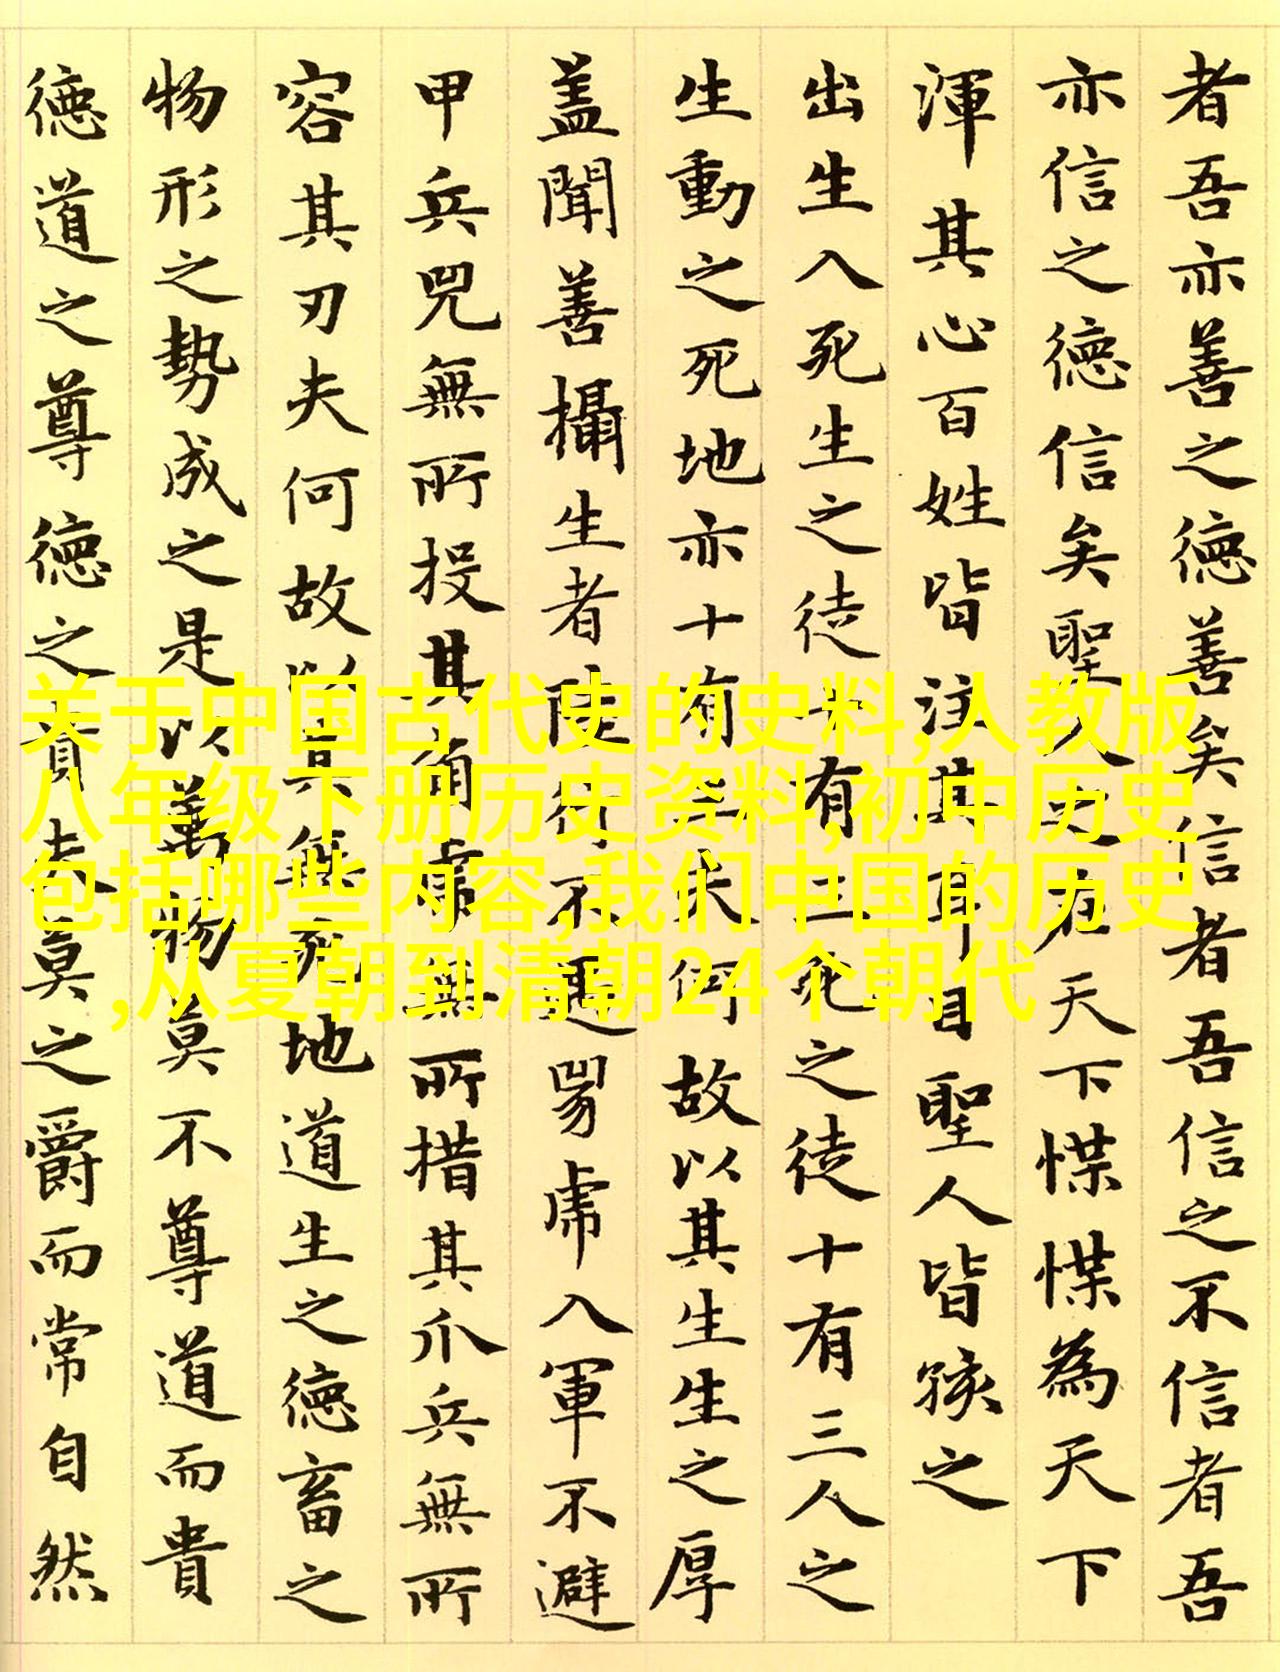 者吾亦善之德善矣信者吾信之不信者吾
亦信之德信矣聖人之在天下惵惵為天下
渾其心百姓皆注其耳目聖人皆孩之
出生入死生之徒十有三死之徒十有三人之
生動之死地亦十有三夫何故以其生生之厚
蓋聞善攝生者陸行不遇兕虎入軍不避
甲兵兕無所投其角虎無所措其爪兵無所
容其刃夫何故以其無死地道生之德畜之
物形之勢成之是以萬物莫不尊道而貴
德道之尊德之貴夫莫之爵而常自然
关于中国古代史的史料,人教版
八年级下册历史资料,初中历史
包括哪些内容,我们中国的历史
,从夏朝到清朝24个朝代